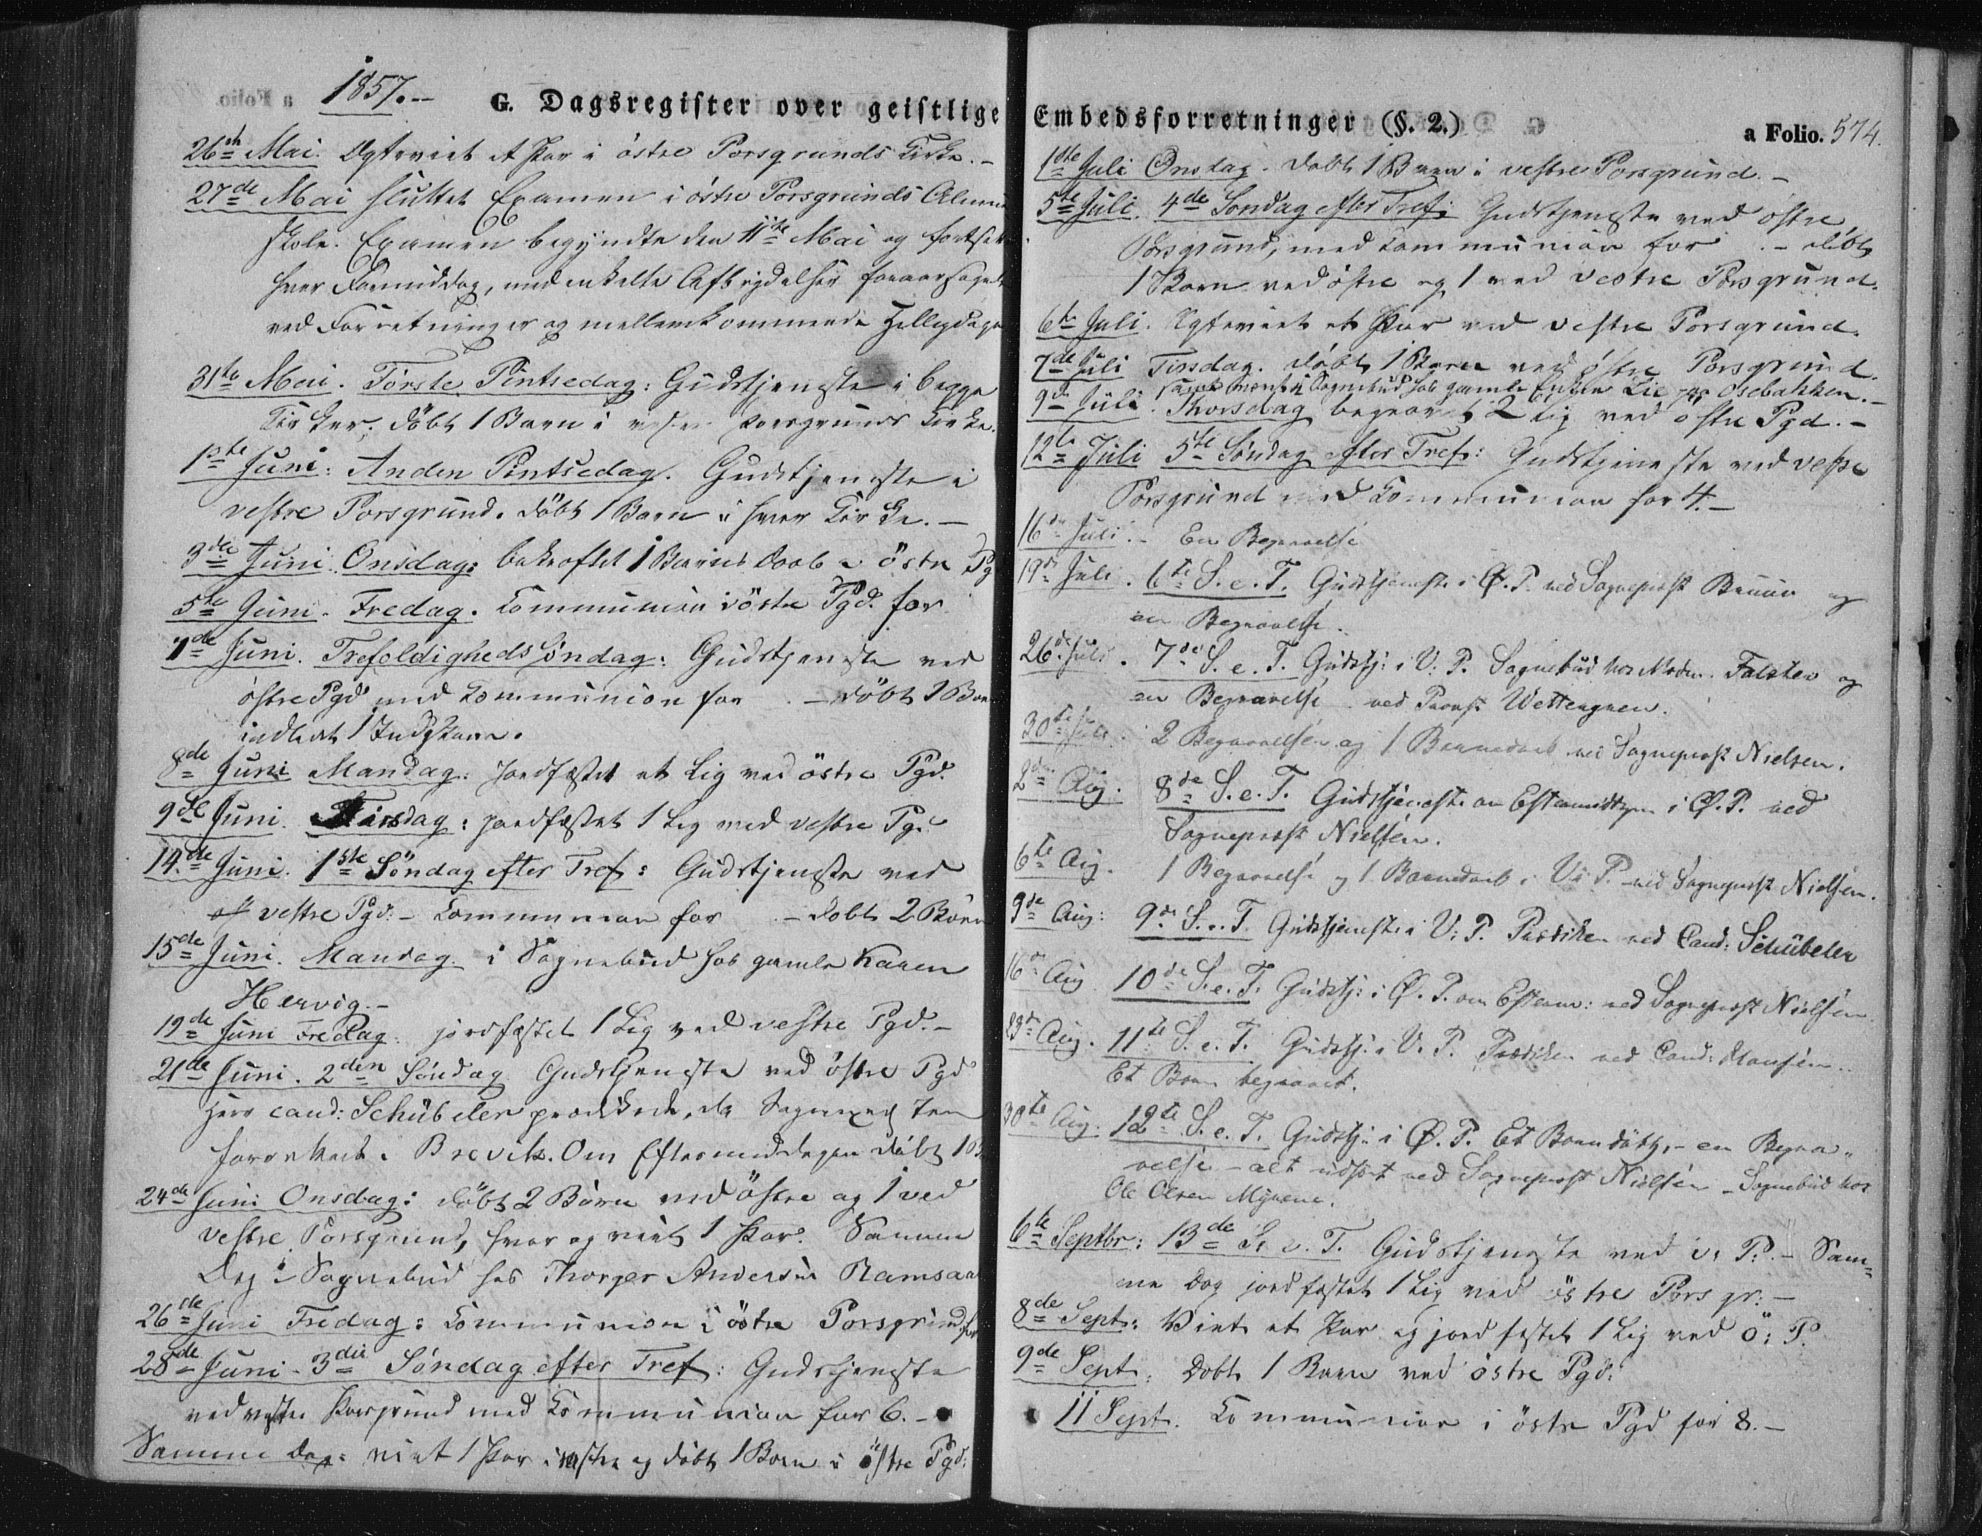 1857.-
G. Dagsregister over geistlige
26de Mai. Ægteviet et Par i østre Porsgrunds Kirke. -
27de Mai sluttet Examen i østre Porsgrunds Almue
skole. Examen begyndte den 11te Mai og fortsat
hver Formiddag, med enkelte Afbrydelser foraarsaget
ved Forretninger og mellemkommende Helligdage
31te Mai. Første Pintsedag: Gudstjeneste i begge
Kirker, døbt 1 Barn i vestre Porsgrunds Kirke.
1ste Juni: Anden Pintsedag. Gudstjeneste i
vestre Porsgrund. døbt 1 Barn i hver Kirke. -
3die Juni. Onsdag: bekræftet 1 Barns Daab i östre Pg
5te Juni. Fredag. Communion i östre Pgd. for
7de Juni. Trefoldigheds Søndag: Gudstjeneste ved
østre Pgd med Communion for . - døbt 1 Barn
indledt 1
8de Juni Mandag: Jordfæstet et Lig ved östre Pgd.
9de Juni. Tirsdag: jordfæstet 1 Lig ved vestre Pg.
14de Juni. 1ste Søndag efter Tref: Gudstjeneste ved
vestre Pgd. - Communion for - døbt 2 Børn
15de Juni. Mandag. i Sognebud hos gamle Karen
Hervig. -
19de Juni Fredag. jordfæstet 1 Lig ved vestre Pgd. -
21de Juni. 2den Søndag Gudstjeneste ved østre Pgd
Herr cand: Schübeler prædikede, da Sognepræsten
forrettede i Brevik. Om Eftermiddagen døbt 1 B
24de Juni Onsdag: døbt 2 Børn ved østre og 1 ved
vestre Porsgrund, hvor og viet 1 Par. Samme
Dag i Sognebud hos Thorger Andersen Ramsaa
26de Juni Fredag: Communion i östre Porsgrund for
28de Juni - 3die Søndag efter Tref: Gudstjeneste
ved vestre Porsgrund med Communion for 6. -
Samme Dag: viet 1 Par i vestre og døbt 1 Barn i østre Pgd.
Embedsforretninger (§. 2.)
a Folio. 574.
1ste Juli Onsdag. døbt 1 Barn i vestre Porsgrund. -
5te Juli. 4de Søndag efter Tref: Gudstjeneste ved østre
Porsgrund, med Communion for . - døbt
1 Barn ved østre og 1 ved vestre Porsgrund.
6te Juli. Ægteviet et Par ved vestre Porsgrund.
7de Juli Tirsdag. døbt 1 Barn ved østre Porsgrund.
Sognebud hos gamle Enken Lie paa Osebakken. -
9de Juli. Thorsdag begravet 2 Lig ved østre Pgd. -
12te Juli 5te Søndag efter Tref: Gudstjeneste ved vestre
Porsgrund med Communion for 4. -
16de Juli. - En Begravelse
19de Juli. 6te S. e. T. Gudstjeneste i Ø. P. ved Sognepræst Bruun og
en Begravelse.
26de Juli. 7de S. e. T. Gudstj: i V. P. Sognebud hos Madm. Falsten og
en Begravelse. ved Provst Wettergreen.
30te Juli. 2 Begravelser og 1 Barnedaab ved Sognepræst Nielsen.
2den Aug. 8de S. e. T. Gudstjeneste om Eftermiddagen i Ø. P. ved
Sognepræst Nielsen.
6te Aug. 1 Begravelse og 1 Barnedaab i V. P. ved Sognepræst Nielsen.
9de Aug: 9de S. e. T. Gudstjeneste i V. P. Prædiken ved Cand: Schübeler
16de Aug 10de S. e. T. Gudstj: i Ø. P. om Efterm: ved Sognepræst Nielsen.
23de Aug. 11te S. e. T. Gudstj: i V. P. Prædiken ved Cand: Hansen.
Et Barn begravet.
30te Aug: 12te S. e. T. Gudstj: i Ø. P. Et Barn døbt, - en Begra„
velse - alt udført ved Sognepræst Nielsen - Sognebud hos
Ole Olsen Myrene.
6te Septbr: 13de S. e. T. Gudstjeneste ved v: P. - Sam=
me Dag jordfæstet 1 Lig ved östre Porsgr: -
8de Sept: Viet et Par og jordfæstet 1 Lig ved ö: P.
9de Sept. Døbt 1 Barn ved østre Pgd:
11 Sept. Communion i östre Pgd for 8. -